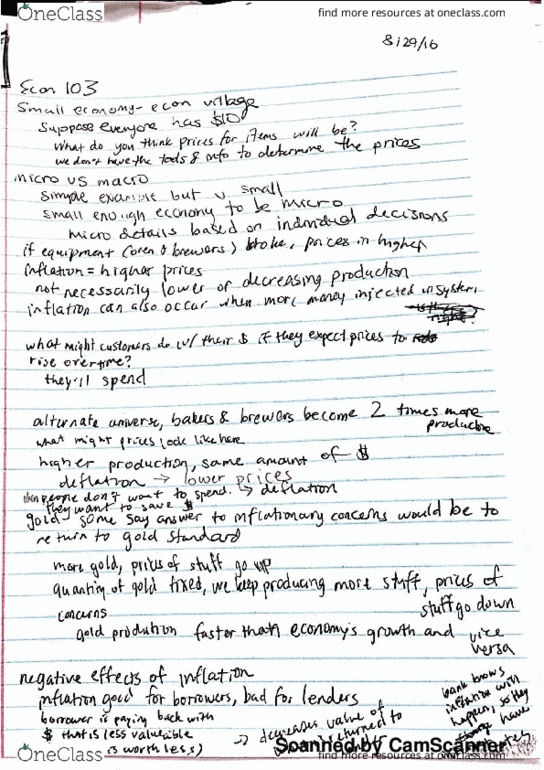 OneClass
find more resources at oneclass.com
8/29/16
Econ 103
Small economy - econ village
Suppose everyone has $10
What do you think prices for items will be?
we don't have the tools & info to determine the prices
micro vs macro
simple example but v small
small enough economy to be micro
micro details based on individual decisions
if equipment (oven & brewers) broke, prices in higher
inflation = higher prices
not necessarily lower or decreasing production
inflation can also occur when more money injected in system
what might customers do w/ their $ if they expect prices to
rise overtime?
they'll spend
alternate universe, bakers & brewers become 2 times more
productive
what might prices look like here
higher production, same amount of $
deflation → lower prices
when people don't want to spend. → deflation
they want to save $
gold - some say answer to inflationary concerns would be to
return to gold standard
more gold, prices of stuff go up
quantity of gold fixed, we keep producing more stuff, prices of
stuff go down
concerns
gold production faster than economy's growth and vice
versa
negative effects of inflation
inflation good for borrowers, bad for lenders
borrower is paying back with
$ that is less valuable
(is worth less)
→ decreases value of
returned to
bank knows
inflation will
happen, so they
have
OneClass
find more resources at oneclass.com
Scanned by CamScanner